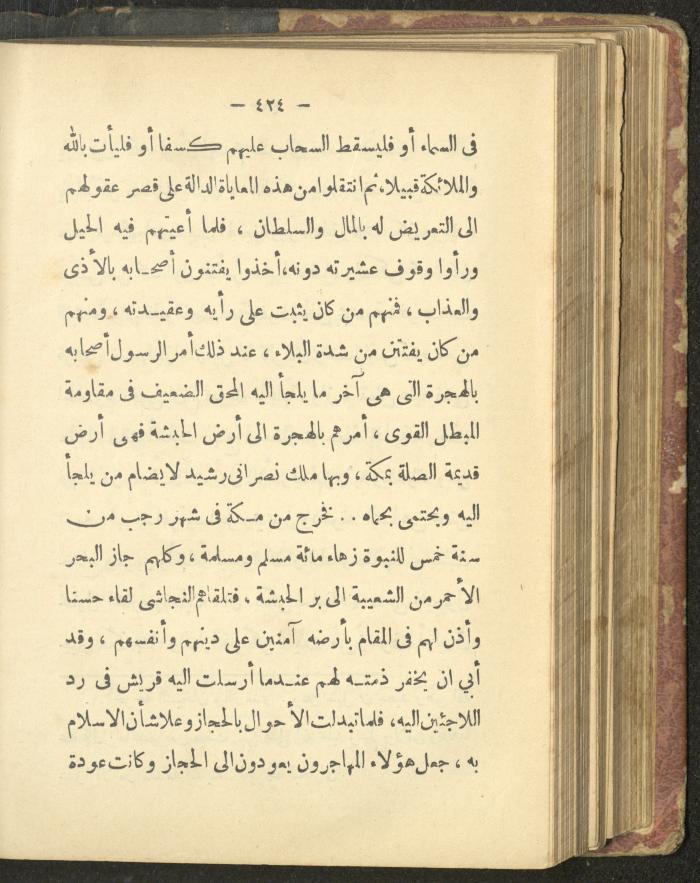 — ٤٢٤ —
فى السماء أو فليسقط السحاب عليهم كسفا أو فليأت بالله
والملائكة قبيلا، ثم انتقلوا من هذه المعاياة الدالة على قصر عقولهم
الى التعريض له بالمال والسلطان ، فلما أعيتهم فيه الحيل
ورأوا وقوف عشيرته دونه، أخذوا يفتنون أصحابه بالأذى
والعذاب ، فمنهم من كان يثبت على رأيه وعقيدته ، ومنهم
من كان يفتتن من شدة البلاء ، عند ذلك أمر الرسول أصحابه
بالهجرة التى هى آخر ما يلجأ اليه المحق الضعيف فى مقاومة
المبطل القوى ، أمرهم بالهجرة الى أرض الحبشة فهى أرض
قديمة الصلة بمكة ، وبها ملك نصرانى رشيد لا يضام من يلجأ
اليه ويحتمى بحماه . . فخرج من مكة فى شهر رجب من
سنة خمس للنبوة زهاء مائة مسلم ومسلمة ، وكلهم جاز البحر
الأحمر من الشعيبة الى بر الحبشة ، فتلقاهم النجاشى لقاء حسنا
وأذن لهم فى المقام بأرضه آمنين على دينهم وأنفسهم ، وقد
أبي ان يخفر ذمته لهم عندما أرسلت اليه قريش فى رد
اللاجئين اليه، فلما تبدلت الأحوال بالحجاز وعلا شأن الاسلام
به ، جعل هؤلاء المهاجرون يعودون الى الحجاز وكانت عودة